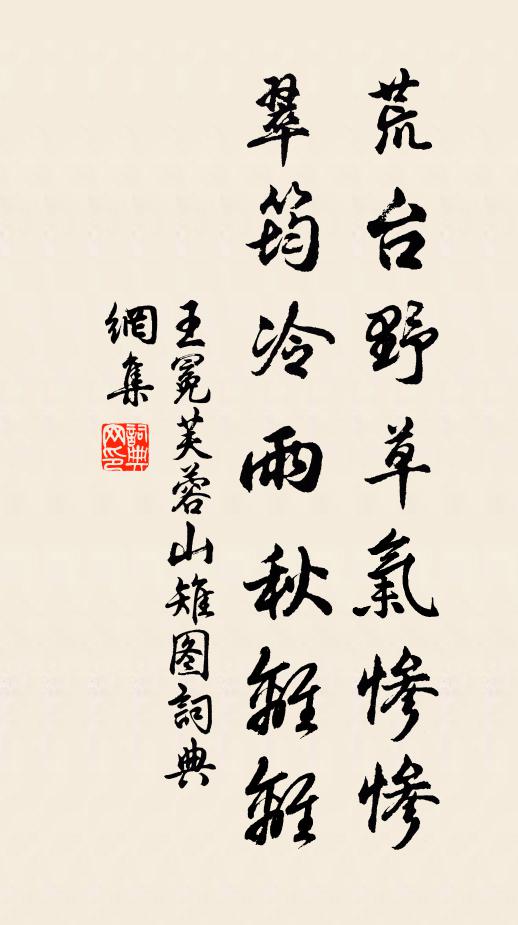 荒台野草氣慘慘
翠筠冷雨秋離離
王冕芙蓉山雉图詞典
網集
詞典
网印